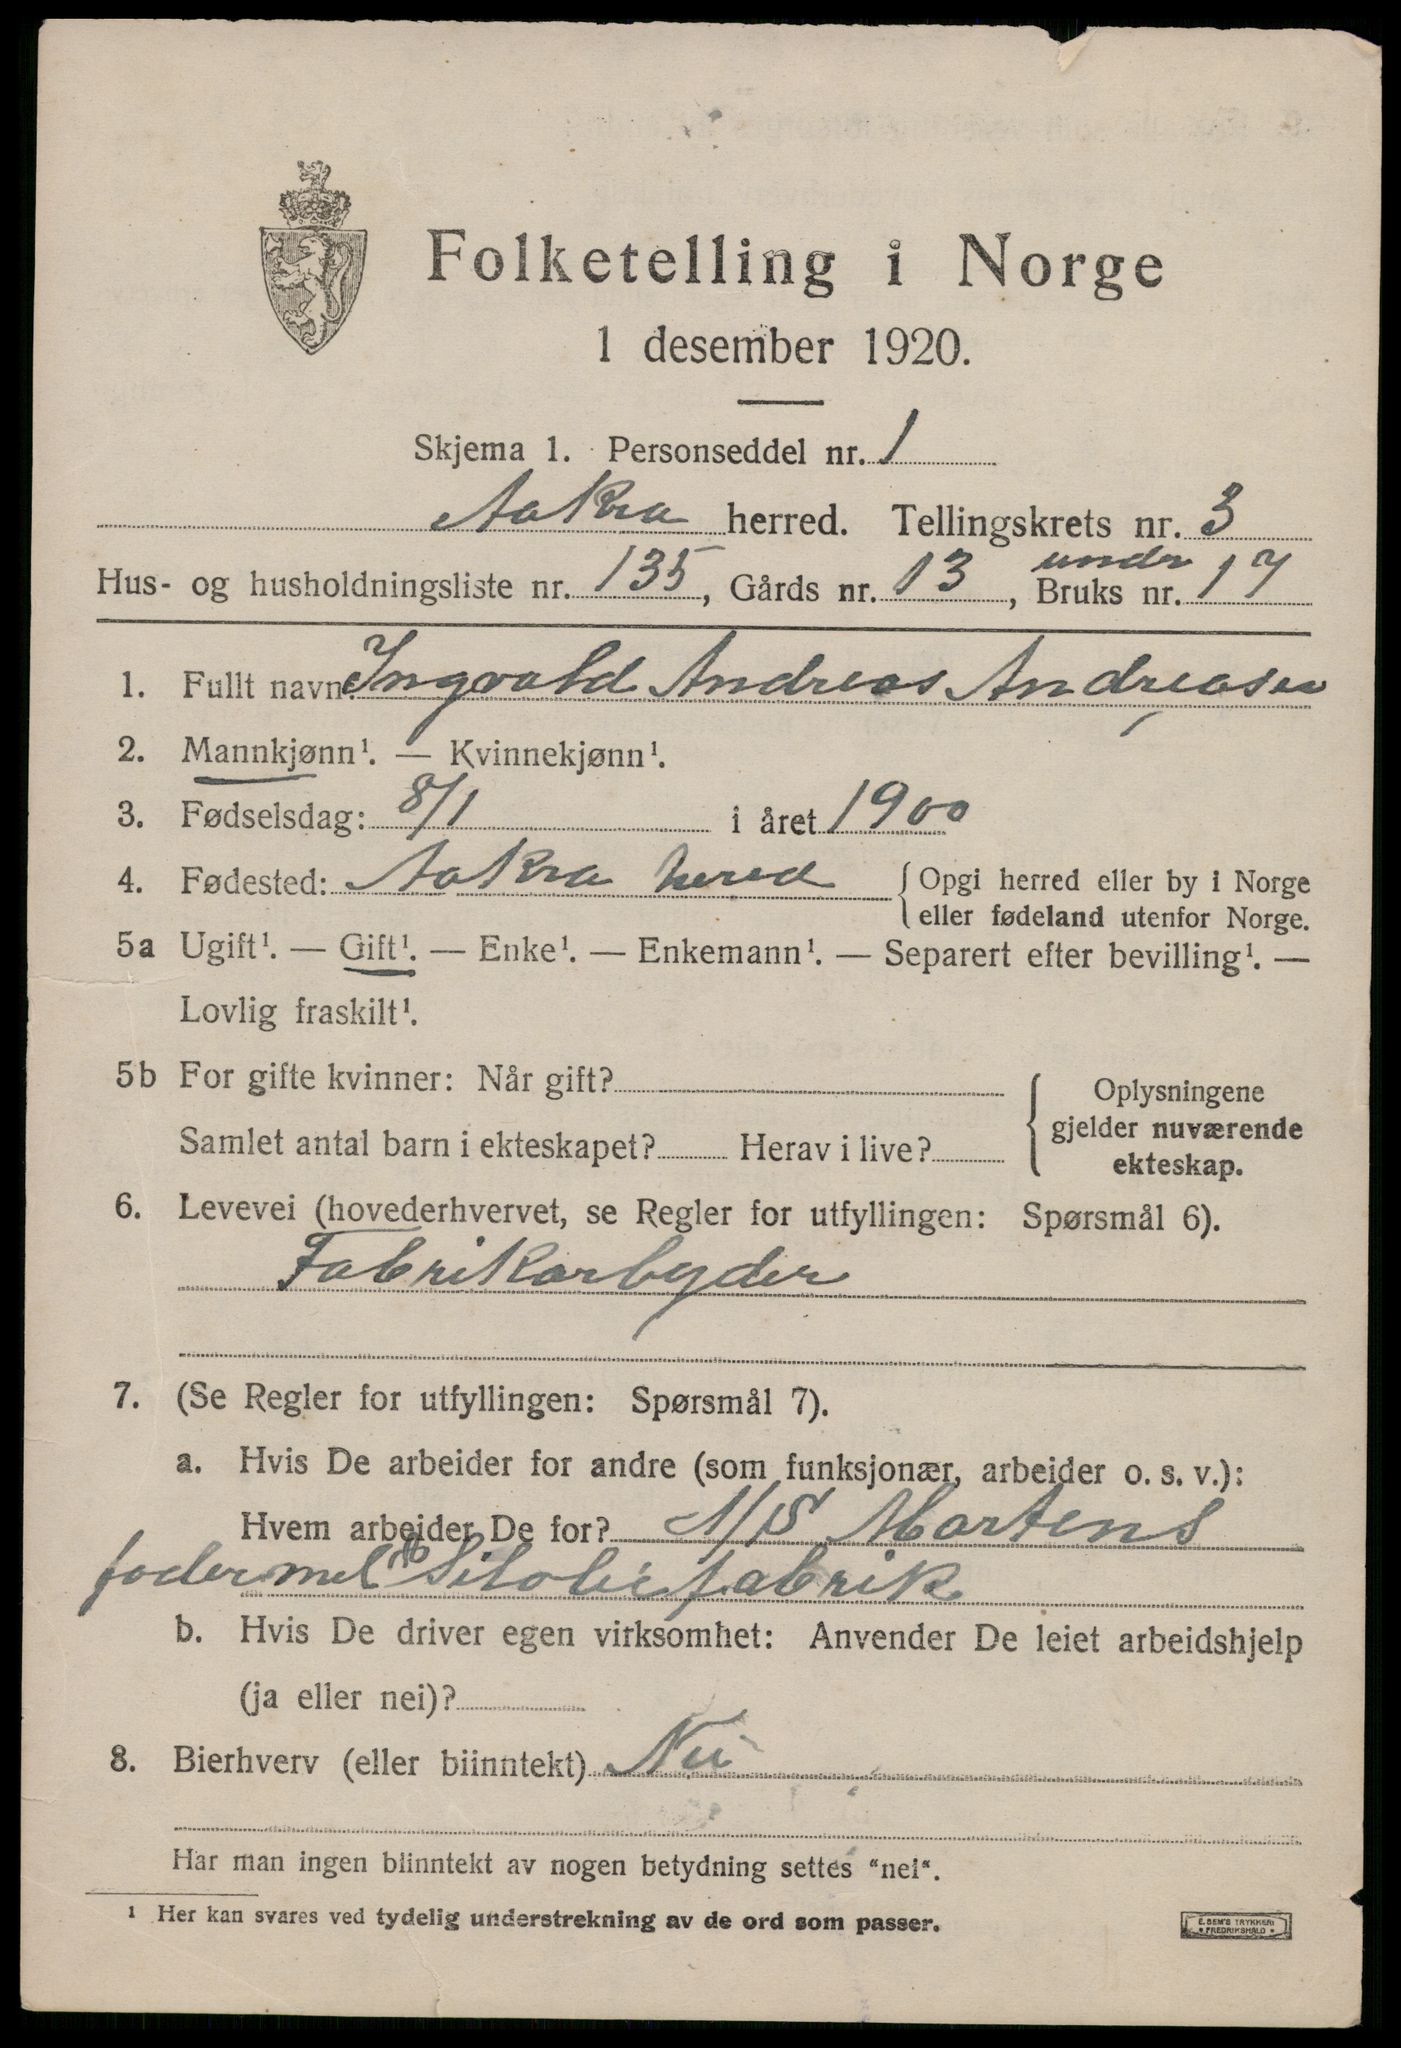 Folketelling i Norge
1 desember 1920.
Skjema 1. Personseddel nr. 1
Aakra herred. Tellingskrets nr. 3
undr
Hus- og husholdningsliste nr. 135, Gårds nr. 13, Bruks nr. 17
1. Fullt navn: Ingvald Andreas Andreasen
2. Mannkjønn¹. — Kvinnekjønn¹.
3. Fødselsdag: 8/1 i året 1900
4. Fødested: Aakra hered { Opgi herred eller by i Norge
eller fødeland utenfor Norge.
5a Ugift¹. — Gift¹. — Enke¹. — Enkemann¹. — Separert efter bevilling¹. —
Lovlig fraskilt¹.
5b For gifte kvinner: Når gift?
Samlet antal barn i ekteskapet? Herav i live?
{ Oplysningene
gjelder nuværende
ekteskap.
6. Levevei (hovederhvervet, se Regler for utfyllingen: Spørsmål 6).
Fabrikarbyder
7. (Se Regler for utfyllingen: Spørsmål 7).
a. Hvis De arbeider for andre (som funksjonær, arbeider o. s. v.):
Hvem arbeider De for? A/S Martens
fodermel & fabrik
b. Hvis De driver egen virksomhet: Anvender De leiet arbeidshjelp
(ja eller nei)?
8. Bierhverv (eller biinntekt) Nei
Har man ingen biinntekt av nogen betydning settes "nei".
¹ Her kan svares ved tydelig understrekning av de ord som passer.
E. SEM'S TRYKKERI
• FREDRIKSHALD •